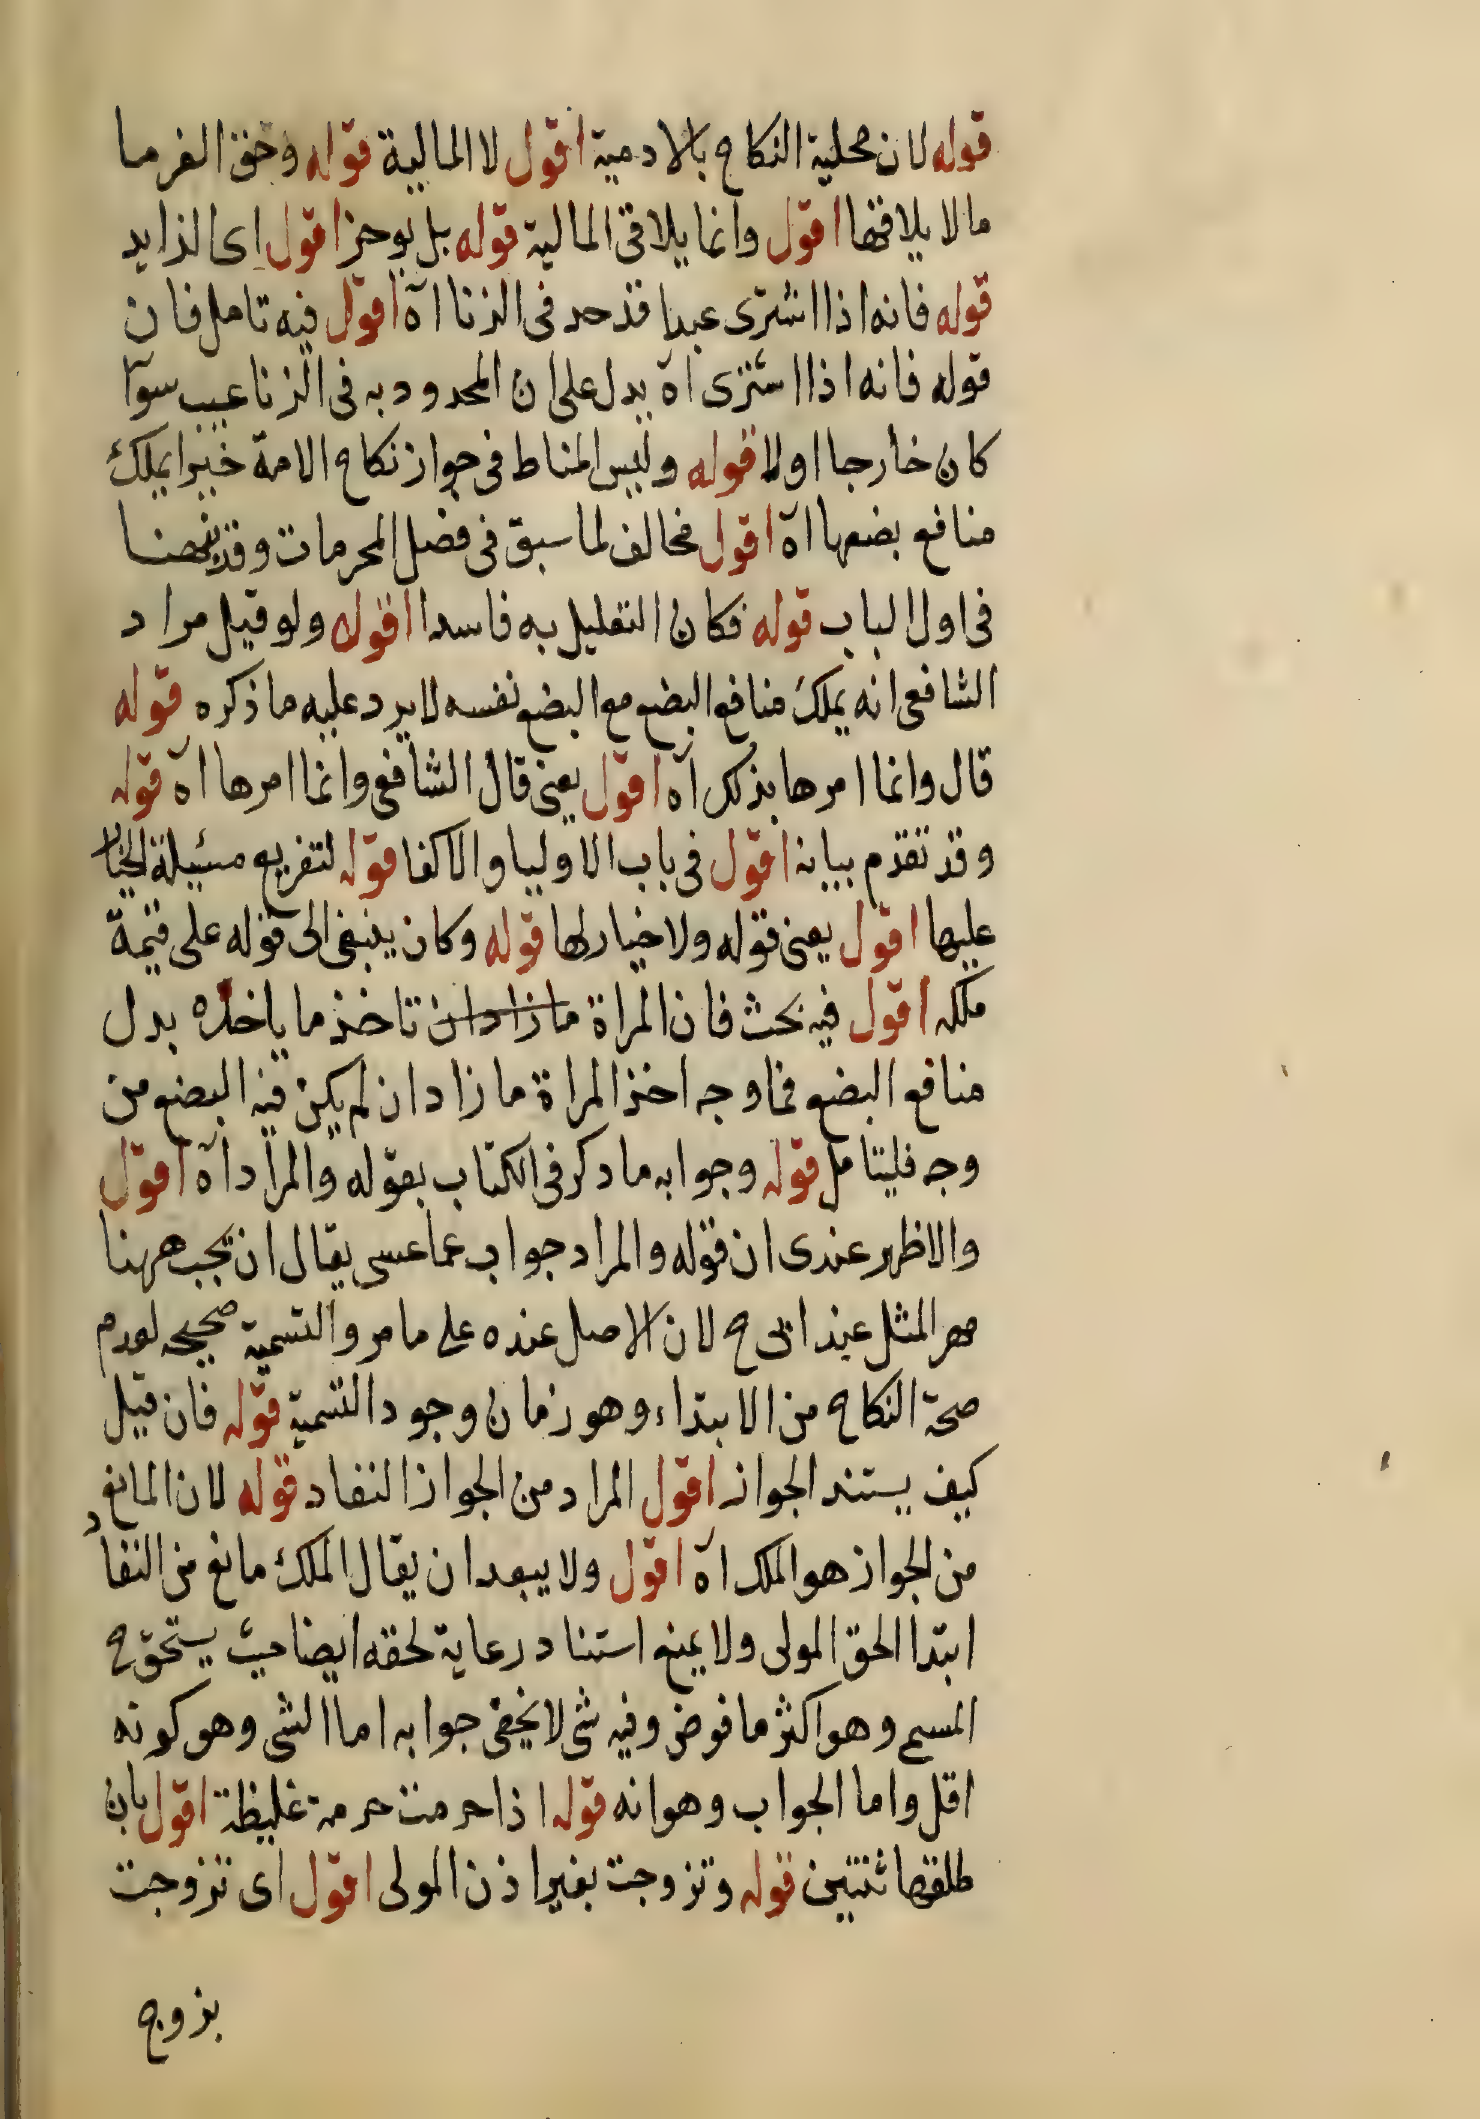 قوله لان محلية النكاح بالادمية اقول لا المالية قوله وحق الغرما
ما لا يلاقيها اقول وانما يلاقى المالية قوله بل يوحز اقول اى الزايد
قوله فانه اذا اشترى عبدا قد حد فى الزنا اه اقول فيه تامل فان
قوله فانه اذا اشترى اه يدل على ان المحدود به فى الزنا عيب سوآ
كان خارجا اولا قوله وليس المناط فى جواز نكاح الامة خيرا يملك
منافع بضعها اه اقول مخالف لما سبق فى فصل المحرمات وقد
فى اول الباب قوله فكان التعليل به فاسدا اقول ولو قيل مراد
الشافعى انه يملك منافع البضع مع البضع نفسه لا يرد عليه ما ذكره قوله
قال وانما امرها بذلك اه اقول يعنى قال الشافعى وانما امرها اه قوله
وقد تقدم بيانه اقول فى باب الاوليا والاكفا قوله لتفريع مسئيلة الخيار
عليها اقول يعنى قوله ولا خيار لها قوله وكان ينبغى الى قوله على قيمة
ملكه اقول فيه بحث فان المراة ما زاد ان تاخذ ما ياخذه بدل
منافع البضع فما وجه اخذ المراة ما زاد ان لم يكن فيه البضع من
وجه فليتامل قوله وجوابه ما دكر فى الكتاب بقوله والمراد اه اقول
والاظهر عندى ان قوله والمراد جواب عما عسى يقال ان يجب ههنا
مهر المثل عند ابى ح لان الاصل عنده على ما مر والتسمية صحيحه لعدم
صحة النكاح من الابتداء وهو زمان وجود التسمية قوله فان قيل
كيف يستند الجواز اقول المراد من الجواز النفاد قوله لان المانع
من الجواز هو الملك اه اقول ولا يبعد ان يقال الملك مانع من النفاد
ابتدا الحق المولى ولا يمنع استناد رعاية لحقه ايضا حيث يستحق ح
المسمى وهو اكثر ما فوض وفيه شى لا يخفى جوابه اما الشى وهو كونه
اقل واما الجواب وهو انه قوله اذا حرمت حرمة غليظة اقول بان
طلقها ثنتين قوله وتزوجت بغير اذن المولى اقول اى تزوجت
بزوج